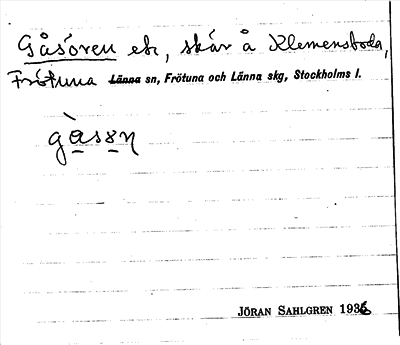 Gåsören ek, skär å Klemensboda,
Frötuna Länna sn, Frötuna och Länna skg, Stockholms l.
gàsən
JÖRAN SAHLGREN 1936